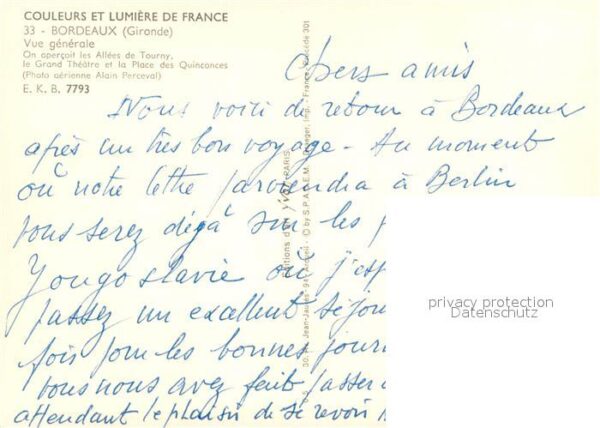 COULEURS ET LUMIÈRE DE FRANCE
33 - BORDEAUX (Gironde)
Vue générale
On aperçoit les Allées de Tourny,
le Grand Théâtre et la Place des Quinconces
(Photo aérienne Alain Perceval)
E. K. B. 7793
Chers amis
Nous voici de retour à Bordeaux
après un très bon voyage - Au moment
où notre lettre parviendra à Berlin
vous serez déjà sur les
Yougoslavie où j'esp
passez un excellent séjou
fois pour les bonnes journ
vous nous avez fait passer
attendant le plaisir de se revoir
privacy protection
Datenschutz